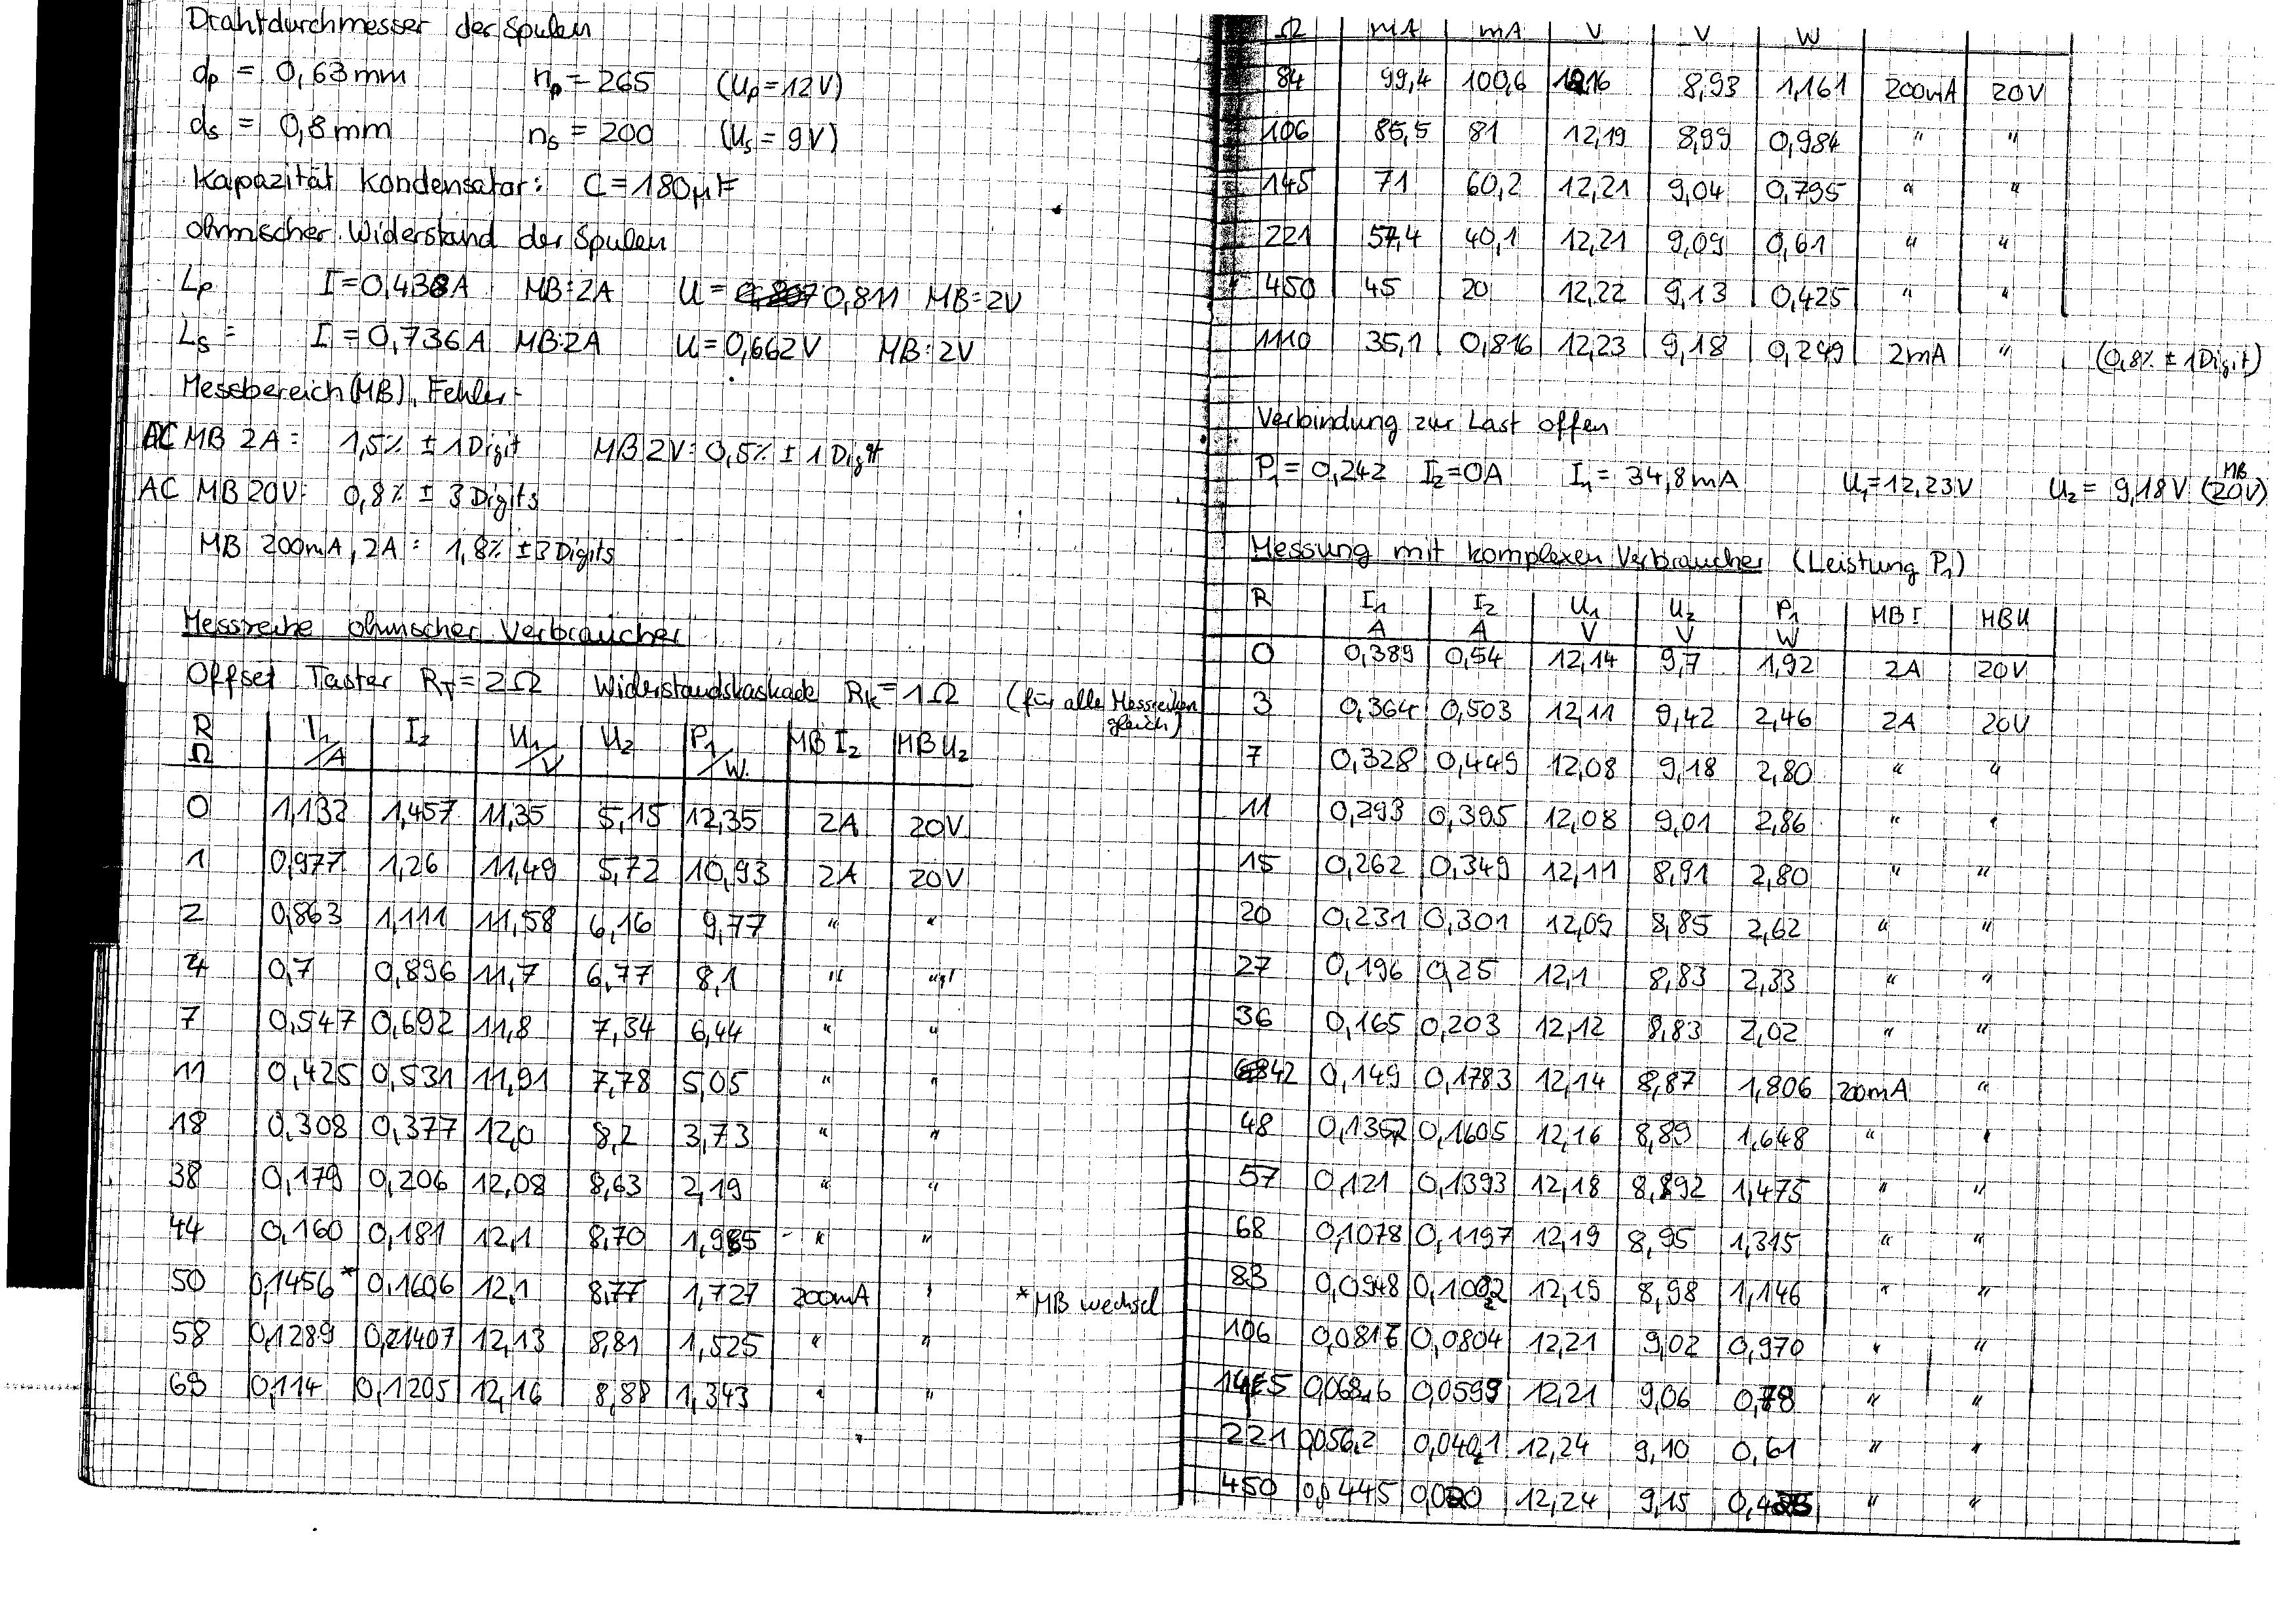 Drahtdurchmesser der Spulen
dp = 0,63mm np = 265 (Up = 12V)
ds = 0,8mm ns = 200 (Us = 9V)
Kapazität Kondensator: C = 180µF
ohmischer Widerstand der Spulen
Lp I = 0,438A MB: 2A U = 0,811 MB: 2V
Ls = I = 0,736A MB: 2A U = 0,662V MB: 2V
Messbereich (MB), Fehler:
AC MB 2A: 1,5% ± 1 Digit MB 2V: 0,5% ± 1 Digit
AC MB 20V: 0,8% ± 3 Digits
MB 200mA, 2A: 1,8% ± 3 Digits
Messreihe ohmischer Verbraucher
Offset Taster RT = 2Ω Widerstandskaskade Rk = 1Ω (für alle Messreihen gleich)
R/Ω I1/A I2 U1/V U2 P1/W MB I2 MB U2
0 1,132 1,457 11,35 5,15 12,35 2A 20V
1 0,977 1,26 11,49 5,72 10,93 2A 20V
2 0,863 1,111 11,58 6,16 9,77 " "
4 0,7 0,896 11,7 6,77 8,1 " "
7 0,547 0,692 11,8 7,34 6,44 " "
11 0,425 0,531 11,91 7,78 5,05 " "
18 0,308 0,377 12,0 8,2 3,73 " "
38 0,179 0,206 12,08 8,63 2,19 " "
44 0,160 0,181 12,1 8,70 " "
50 0,1456* 0,1606 12,1 8,77 1,727 200mA " *MB wechsel
58 0,1289 0,1407 12,13 8,81 1,525 " "
69 0,114 0,1205 12,16 8,88 1,343 " "
Ω mA mA V V W
84 99,4 100,6 12,16 8,93 1,161 200mA 20V
106 85,5 81 12,19 8,99 0,984 " "
145 71 60,2 12,21 9,04 0,795 " "
221 57,4 40,1 12,21 9,09 0,61 " "
450 45 20 12,22 9,13 0,425 " "
1110 35,1 0,816 12,23 9,18 0,249 2mA " (0,8% ± 1 Digit)
Verbindung zur Last offen
P1 = 0,242 I2 = 0A I1 = 34,8mA U1 = 12,23V U2 = 9,18V (MB 20V)
Messung mit komplexen Verbraucher (Leistung P1)
R I1 I2 U1 U2 P1 MB I MB U
A A V V W
0 0,389 0,54 12,14 9,7 1,92 2A 20V
3 0,364 0,503 12,11 9,42 2,46 2A 20V
7 0,328 0,449 12,08 9,18 2,80 " "
11 0,293 0,395 12,08 9,01 2,86 " "
15 0,262 0,349 12,11 8,91 2,80 " "
20 0,231 0,301 12,09 8,85 2,62 " "
27 0,196 0,25 12,1 8,83 2,33 " "
36 0,165 0,203 12,12 8,83 2,02 " "
42 0,149 0,1783 12,14 8,87 1,806 200mA "
48 0,1352 0,1605 12,16 8,89 1,648 " "
57 0,121 0,1393 12,18 8,892 1,475 " "
68 0,1078 0,1197 12,19 8,95 1,315 " "
83 0,0948 0,1002 12,19 8,98 1,146 " "
106 0,0816 0,0804 12,21 9,02 0,970 " "
145 0,0686 0,0599 12,21 9,06 0,78 " "
221 0,0562 0,0401 12,24 9,10 0,61 " "
450 0,0445 0,020 12,24 9,15 " "